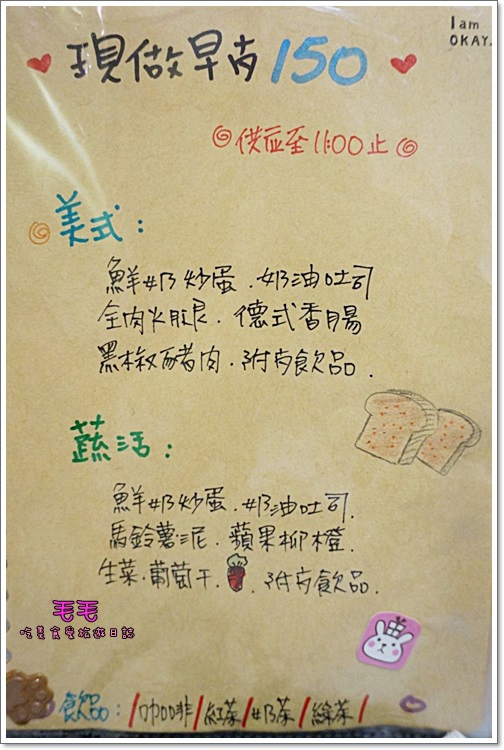 I am
OKAY.
現做早点150
供应至11:00止
美式：
鮮奶炒蛋．奶油吐司
全肉火腿．德式香腸
黑椒豬肉．附方飲品．
蔬活：
鮮奶炒蛋．奶油吐司．
馬鈴薯泥．蘋果柳橙．
生菜．葡萄干．附方飲品．
毛毛
吃美食愛旅遊日誌
飲品：/咖啡/紅茶/奶茶/綠茶/